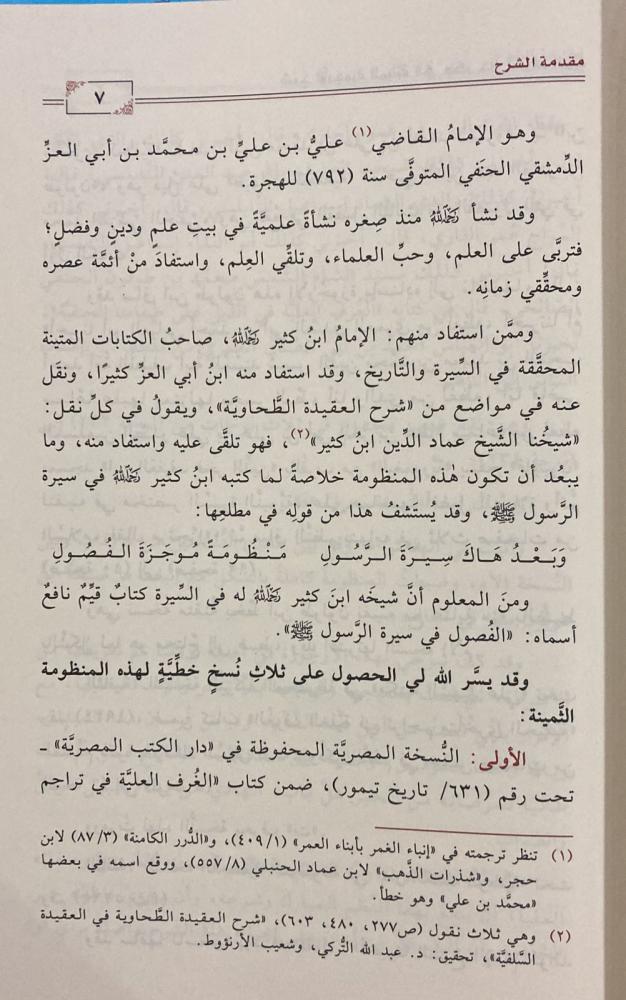 مقدمة الشرح
٧
وهو الإمامُ القاضي(١) عليُّ بن عليِّ بن محمَّد بن أبي العزِّ
الدِّمشقي الحنَفي المتوفَّى سنة (٧٩٢) للهجرة.
وقد نشأ رَحِمَهُ اللهُ منذ صِغره نشأةً علميَّةً في بيتِ علمٍ ودينٍ وفضلٍ؛
فتربَّى على العلم، وحبِّ العلماء، وتلقِّي العِلم، واستفادَ منْ أئمَّة عصره
ومحقِّقي زمانِه.
وممَّن استفاد منهم: الإمامُ ابنُ كثير رَحِمَهُ اللهُ، صاحبُ الكتابات المتينة
المحقَّقة في السِّيرة والتَّاريخ، وقد استفاد منه ابنُ أبي العزِّ كثيرًا، ونقَل
عنه في مواضع من «شرح العقيدة الطَّحاويَّة»، ويقولُ في كلِّ نقل:
«شيخُنا الشَّيخ عماد الدِّين ابنُ كثير»(٢)، فهو تلقَّى عليه واستفاد منه، وما
يبعُد أن تكون هٰذه المنظومة خلاصةً لما كتبه ابنُ كثير رَحِمَهُ اللهُ في سيرة
الرَّسول ﷺ، وقد يُستَشفُّ هذا من قولِه في مطلعِها:
وَبَعْدُ هَاكَ سِيرَةَ الرَّسُولِ مَنْظُومَةً مُوجَزَةَ الفُصُولِ
ومنَ المعلوم أنَّ شيخَه ابنَ كثير رَحِمَهُ اللهُ له في السِّيرة كتابٌ قيِّمٌ نافعٌ
أسماه: «الفُصول في سيرة الرَّسول ﷺ».
وقد يسَّر الله لي الحصول على ثلاثِ نُسخٍ خطِّيَّةٍ لهذه المنظومة
الثَّمينة:
الأولى: النُّسخة المصريَّة المحفوظة في «دار الكتب المصريَّة» ـ
تحت رقم (٦٣١/ تاريخ تيمور)، ضمن كتاب «الغُرف العليَّة في تراجم
(١) تنظر ترجمته في «إنباء الغمر بأبناء العمر» (٤٠٩/١)، و«الدُّرر الكامنة» (٨٧/٣) لابن
حجر، و«شذرات الذَّهب» لابن عماد الحنبلي (٥٥٧/٨)، ووقع اسمه في بعضها
«محمَّد بن علي» وهو خطأ.
(٢) وهي ثلاث نقول (ص٢٧٧، ٤٨٠، ٦٠٣)، «شرح العقيدة الطَّحاوية في العقيدة
السَّلفيَّة»، تحقيق: د. عبد الله التُّركي، وشعيب الأرنؤوط.